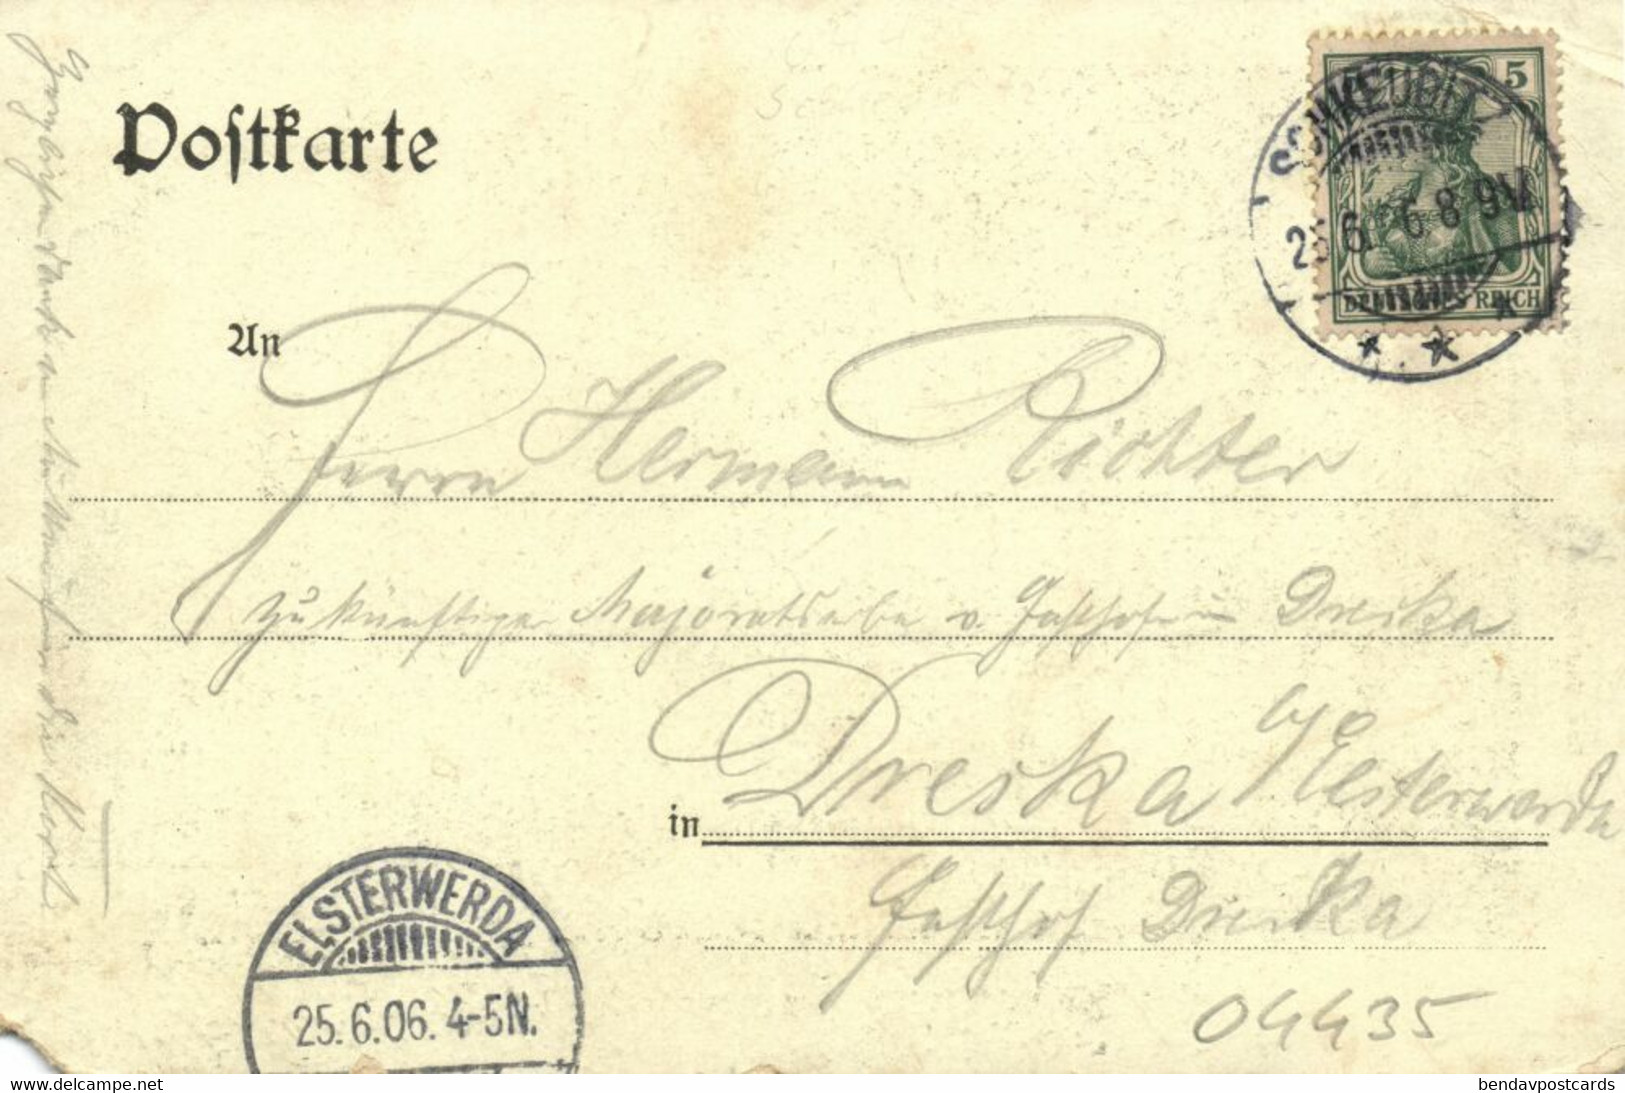 Postkarte
5
DEUTSCHES REICH
SCHKEUDITZ
25.6.06 8-9V
An
Herrn Hermann Richter
zukünftiger Majoratserbe v. Gasthof in Dreska
in Dreska b/ Elsterwerda
Gasthof Dreska
04435
ELSTERWERDA
25.6.06. 4-5N.
delcampe.net
bendavpostcards